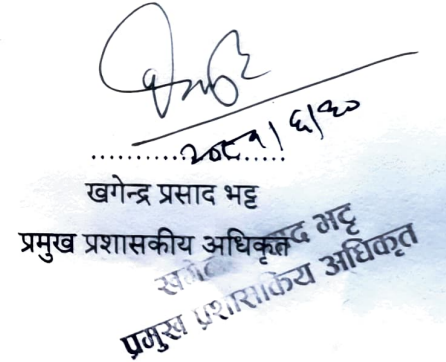 २०८१/६/२०
....................
खगेन्द्र प्रसाद भट्ट
प्रमुख प्रशासकीय अधिकृत
भट्ट
प्रमुख प्रशासकिय अधिकृत